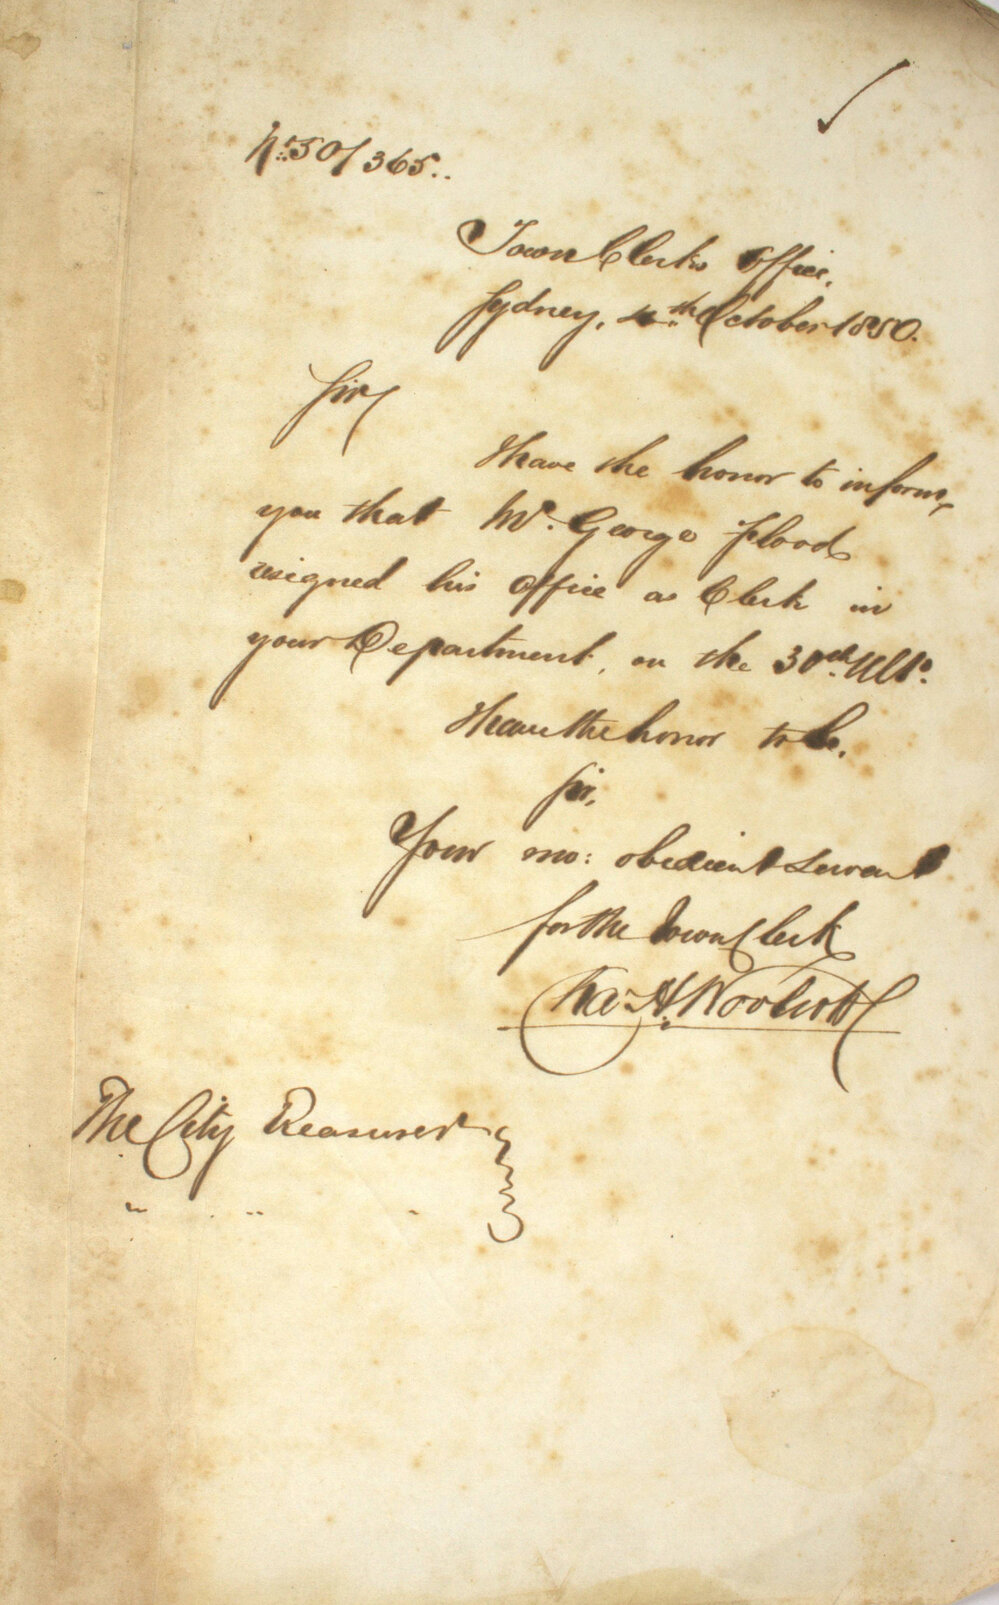 No. 50/365..
Town Clerks Office,
Sydney, 4th October 1850.
Sir,
I have the honor to inform
you that Mr. George Flood
resigned his Office as Clerk in
your Department, on the 30th. Ulto.
I have the honor to be,
Sir,
Your mo: obedient Servant
for the Town Clerk
Chas. H. Woolcott
The City Treasurer